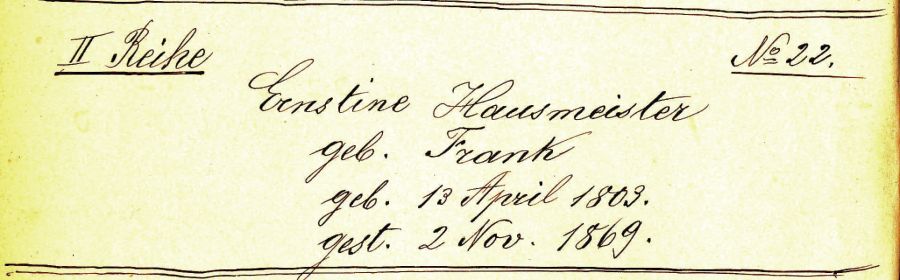 II Reihe
No 22.
Ernstine Hausmeister
geb. Frank
geb. 13 April 1803.
gest. 2 Nov. 1869.